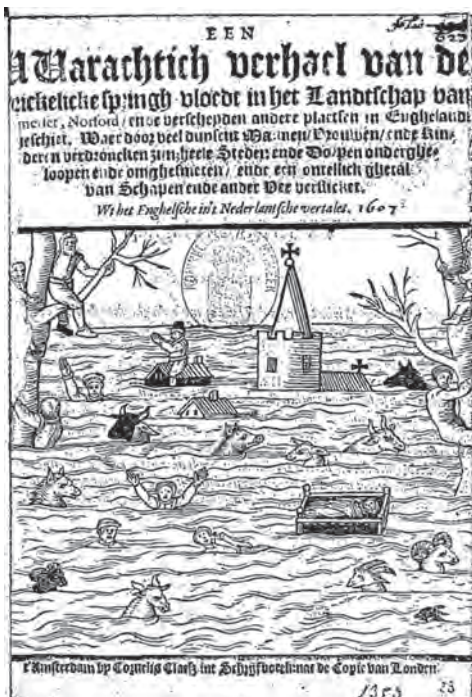 EEN
Warachtich verhael van de
rickelicke springh vloedt in het Landtschap van
merset, Norford / ende verscheyden andere plaetsen in Enghelandt
geschiet. Waer door veel duysent Mannen / Vrouwen / ende Kin-
deren verdroncken zijn; heele Steden ende Dorpen onderghe-
loopen ende omghesmeten / ende een ontellick ghetal
van Schapen ende ander Vee versticket.
Wt het Enghelsche in't Nederlantsche vertalet. 1607
t'Amsterdam by Cornelis Claesz int Schrijfboeck: nae de Copie van Londen.
1351 23